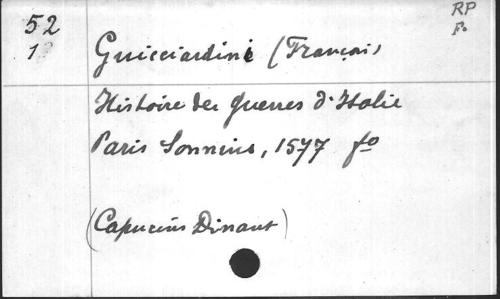 52
1
RP
F.
Guicciardini (François)
Histoire des guerres d'Italie
Paris Sonnius, 1577 fo
(Capucins Dinant)